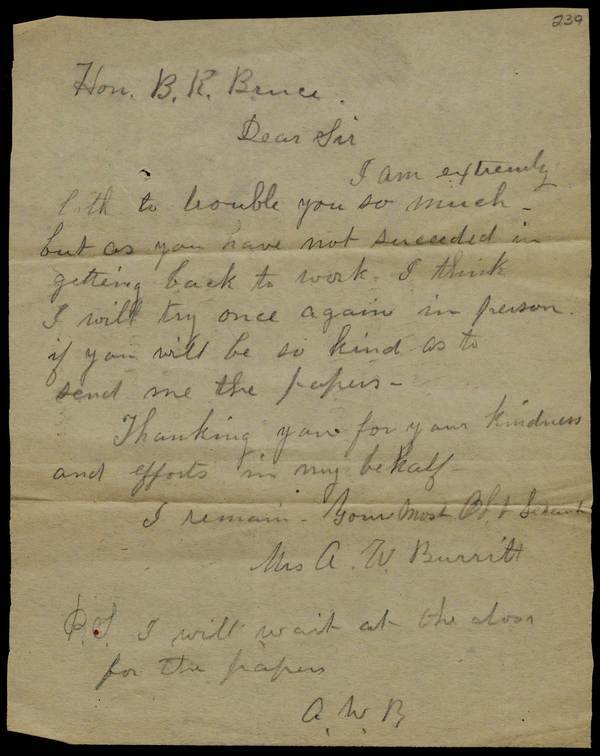 239
Hon. B. K. Bruce.
Dear Sir
I am extremely
loth to trouble you so much -
but as you have not succeeded in
getting back to work - I think
I will try once again in person.
if you will be so kind as to
send me the papers -
Thanking you for your kindness
and efforts in my behalf -
I remain - Your Most Obt Servant
Mrs A. W. Burritt
P.S. I will wait at the door
for the papers
A. W. B